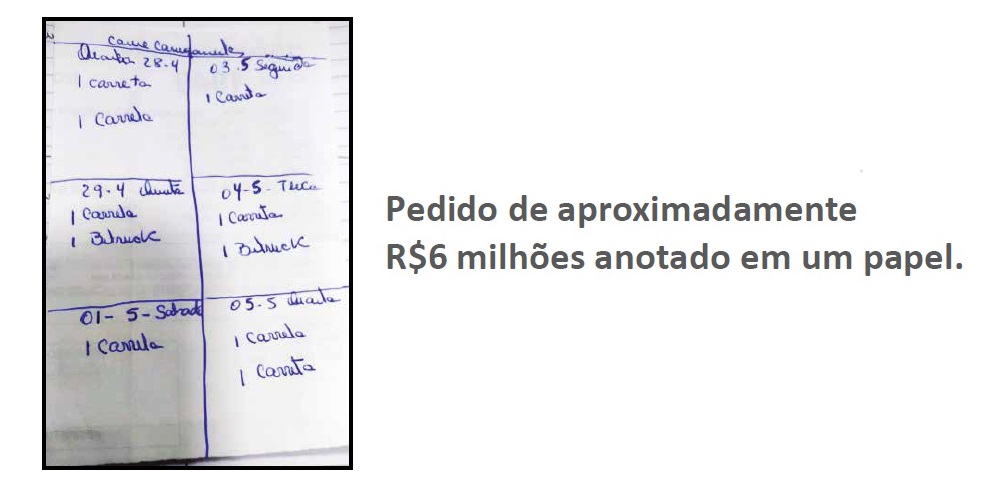 Carne Carregamento
Quarta 28-4
1 carreta
1 Carreta
03.5 Segunda
1 Carreta
29-4 Quinta
1 Carreta
1 Bitruck
04-5- Terça
1 Carreta
1 Bitruck
01- 5- Sabado
1 Carreta
05-5 Quarta
1 Carreta
1 Carreta
Pedido de aproximadamente
R$6 milhões anotado em um papel.